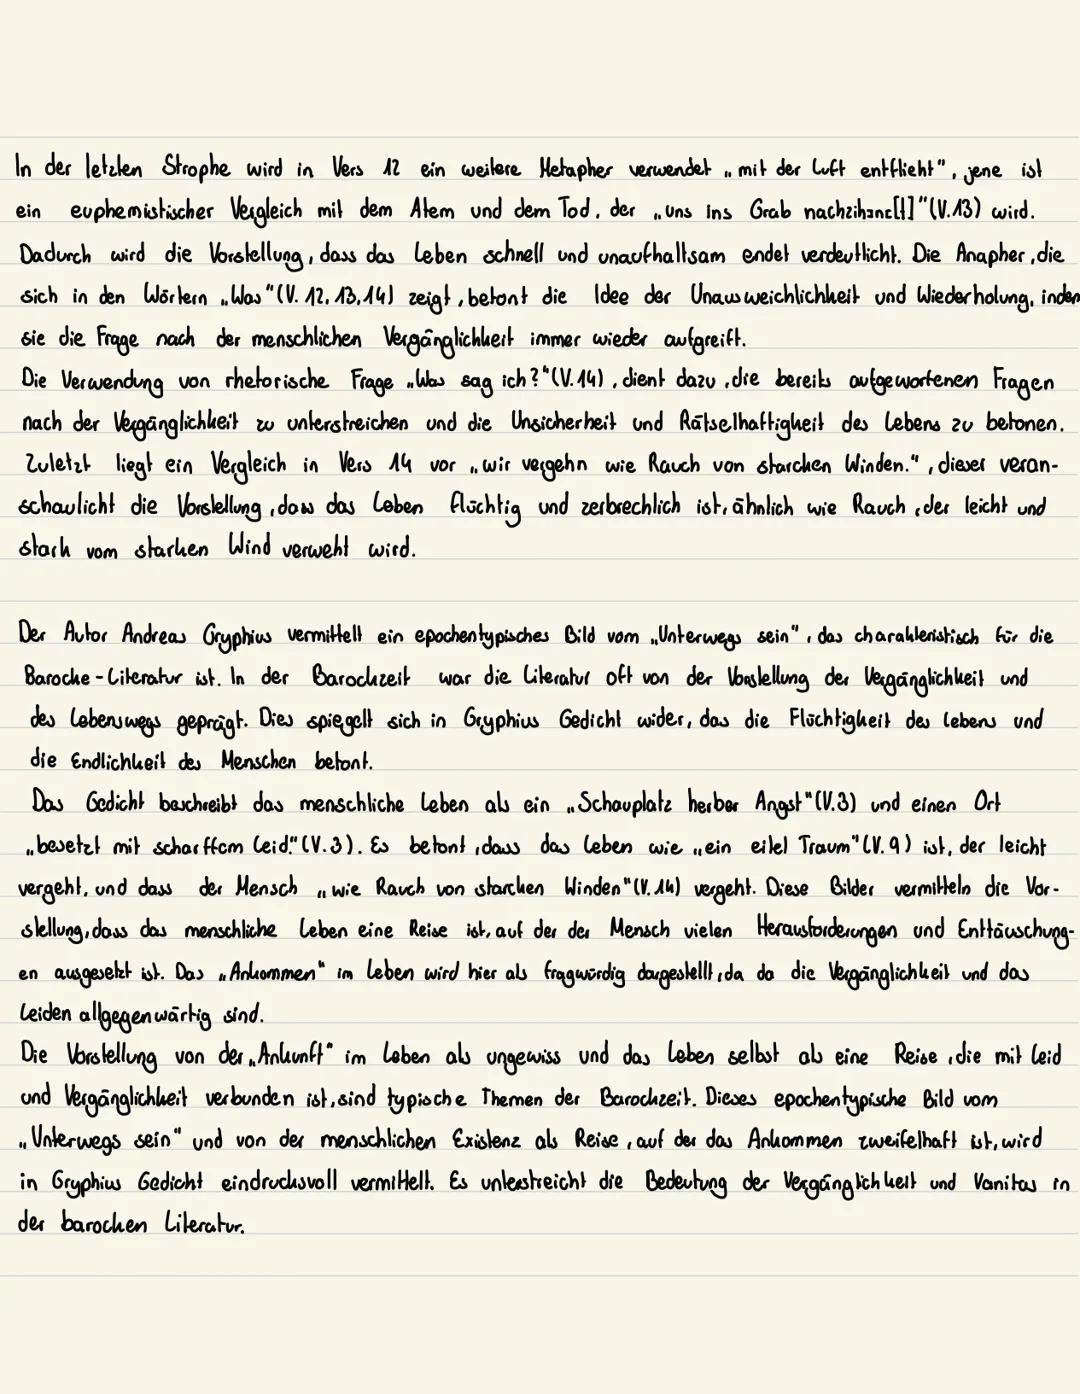 In der letzten Strophe wird in Vers 12 ein weitere Metapher verwendet „mit der Luft entflieht", jene ist
ein euphemistischer Vergleich mit dem Atem und dem Tod, der „uns ins Grab nachzihn[t]"(V.13) wird.
Dadurch wird die Vorstellung, dass das Leben schnell und unaufhaltsam endet verdeutlicht. Die Anapher, die
sich in den Wörtern „Was"(V. 12, 13, 14) zeigt, betont die Idee der Unausweichlichkeit und Wiederholung, indem
sie die Frage nach der menschlichen Vergänglichkeit immer wieder aufgreift.
Die Verwendung von rhetorische Frage „Was sag ich?"(V.14), dient dazu, die bereits aufgeworfenen Fragen
nach der Vergänglichkeit zu unterstreichen und die Unsicherheit und Rätselhaftigkeit des Lebens zu betonen.
Zuletzt liegt ein Vergleich in Vers 14 vor „wir vergehn wie Rauch von starcken Winden.", dieser veran-
schaulicht die Vorstellung, dass das Leben flüchtig und zerbrechlich ist, ähnlich wie Rauch, der leicht und
stark vom starken Wind verweht wird.
Der Autor Andreas Gryphius vermittelt ein epochentypisches Bild vom „Unterwegs sein", das charakteristisch für die
Barocke-Literatur ist. In der Barockzeit war die Literatur oft von der Vorstellung der Vergänglichkeit und
des Lebenswegs geprägt. Dies spiegelt sich in Gryphius Gedicht wider, das die Flüchtigkeit des Lebens und
die Endlichkeit des Menschen betont.
Das Gedicht beschreibt das menschliche Leben als ein „Schauplatz herber Angst"(V.3) und einen Ort
„besetzt mit scharffem Leid."(V.3). Es betont, dass das Leben wie „ein eitel Traum"(V.9) ist, der leicht
vergeht, und dass der Mensch „wie Rauch von starcken Winden"(V.14) vergeht. Diese Bilder vermitteln die Vor-
stellung, dass das menschliche Leben eine Reise ist, auf der der Mensch vielen Herausforderungen und Enttäuschung-
en ausgesetzt ist. Das „Ankommen" im Leben wird hier als fragwürdig dargestellt, da da die Vergänglichkeit und das
Leiden allgegenwärtig sind.
Die Vorstellung von der „Ankunft" im Leben als ungewiss und das Leben selbst als eine Reise, die mit Leid
und Vergänglichkeit verbunden ist, sind typische Themen der Barockzeit. Dieses epochentypische Bild vom
„Unterwegs sein" und von der menschlichen Existenz als Reise, auf der das Ankommen zweifelhaft ist, wird
in Gryphius Gedicht eindrucksvoll vermittelt. Es unterstreicht die Bedeutung der Vergänglichkeit und Vanitas in
der barocken Literatur.